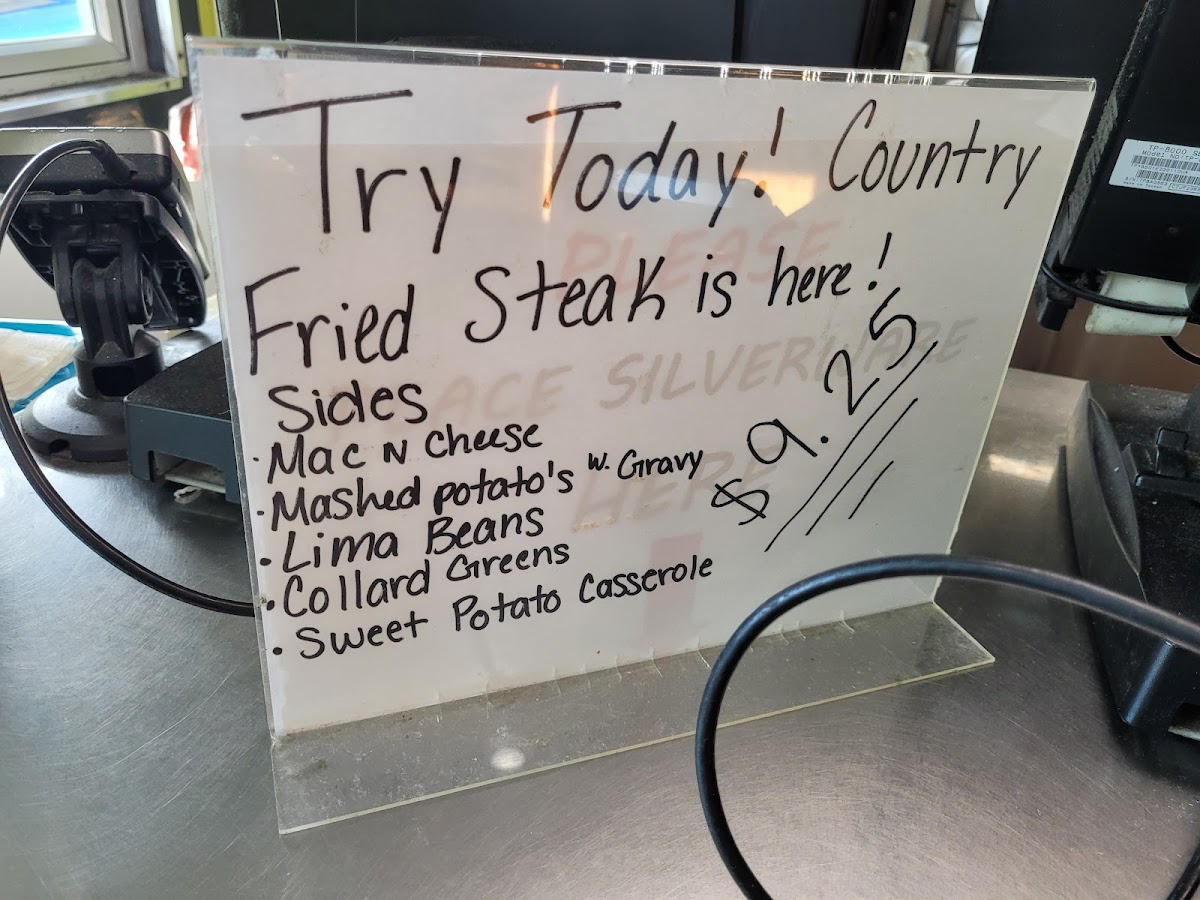 Try Today! Country
Fried Steak is here!
Sides
· Mac N Cheese
· Mashed potato's w. Gravy
· Lima Beans
· Collard Greens
· Sweet Potato Casserole
$9.25
PLEASE
PLACE SILVERWARE
HERE